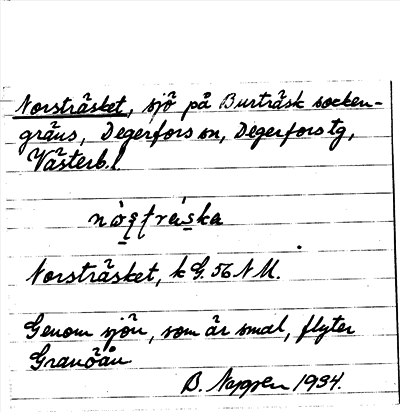 Norsträsket, sjö på Burträsk socken-
gräns, Degerfors sn, Degerfors tg,
Västerb. l.
Norsträsket, k G. 56 N M.
Genom sjön, som är smal, flyter
Granöån
B. 1934.